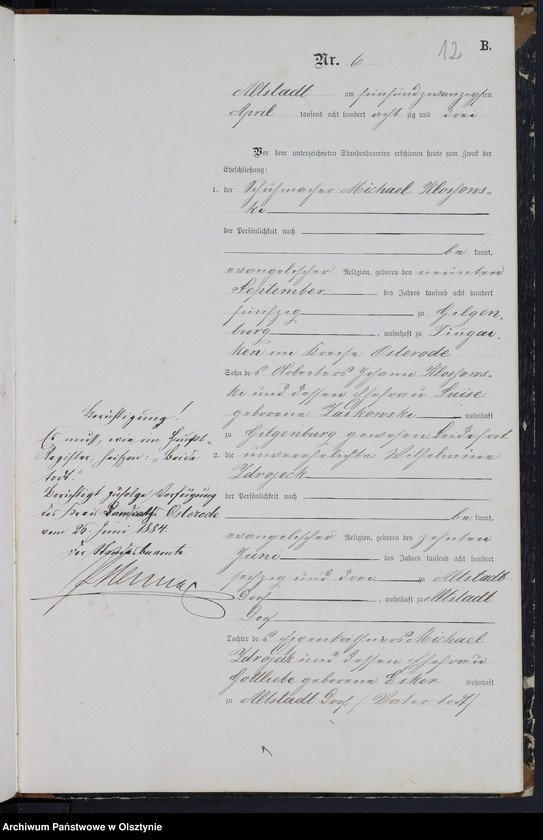 12 B.
Nr. 6
Altstadt am fünfundzwanzigsten
April tausend acht hundert acht zig und drei
Vor dem unterzeichneten Standesbeamten erschienen heute zum Zweck der
Eheschließung:
1. der Schuhmacher Michael Klossows-
ki
der Persönlichkeit nach
be kannt,
evangelischer Religion, geboren den neunten
September des Jahres tausend acht hundert
fünfzig zu Gilgen-
burg, wohnhaft zu
ken im Kreise Osterode
Sohn des Arbeiters Johann Klossows-
ki und dessen Ehefrau Luise
geborene Jaskowski wohnhaft
zu Gilgenburg gewesen, beide
2. die unverehelichte Wilhelmine
Zdrojeck
der Persönlichkeit nach
be kannt,
evangelischer Religion, geboren den zehnten
Juni des Jahres tausend acht hundert
sechzig und drei zu Altstadt
Dorf, wohnhaft zu Altstadt
Dorf
Tochter des Eigenkäthners Michael
Zdrojeck und dessen Ehefrau
Gottliebe geborene Esker wohnhaft
zu Altstadt Dorf / Vater todt /
Berichtigung!
Es muß, wie im Haupt-
Register, heißen: "Beide
todt."
Berichtigt zufolge Verfügung
des Kreis Landraths Osterode
vom 26. Juni 1884.
der Standesbeamte
Archiwum Państwowe w Olsztynie